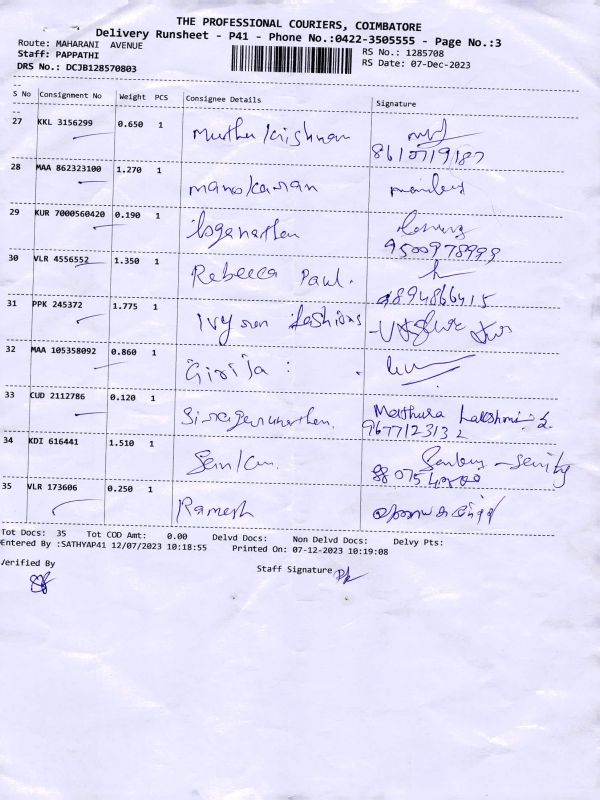 THE PROFESSIONAL COURIERS, COIMBATORE
Delivery Runsheet - P41 - Phone No.:0422-3505555 - Page No.:3
Route: MAHARANI AVENUE
RS No.: 1285708
Staff: PAPPATHI
RS Date: 07-Dec-2023
DRS No.: DCJB128570803
S No Consignment No Weight PCS Consignee Details Signature
27 KKL 3156299 0.650 1 Muthu krishnan
8610719187
28 MAA 862323100 1.270 1 manokaran
29 KUR 7000560420 0.190 1 loganathan
9500978999
30 VLR 4556552 1.350 1 Rebecca Paul.
9894866415
31 PPK 245372 1.775 1 Ivy fashions
32 MAA 105358092 0.860 1 Girija :
33 CUD 2112786 0.120 1 Mathura Lakshmi
9677123132
34 KDI 616441 1.510 1
35 VLR 173606 0.250 1 Ramesh
Tot Docs: 35 Tot COD Amt: 0.00 Delvd Docs: Non Delvd Docs: Delvy Pts:
Entered By :SATHYAP41 12/07/2023 10:18:55 Printed On: 07-12-2023 10:19:08
Verified By
Staff Signature